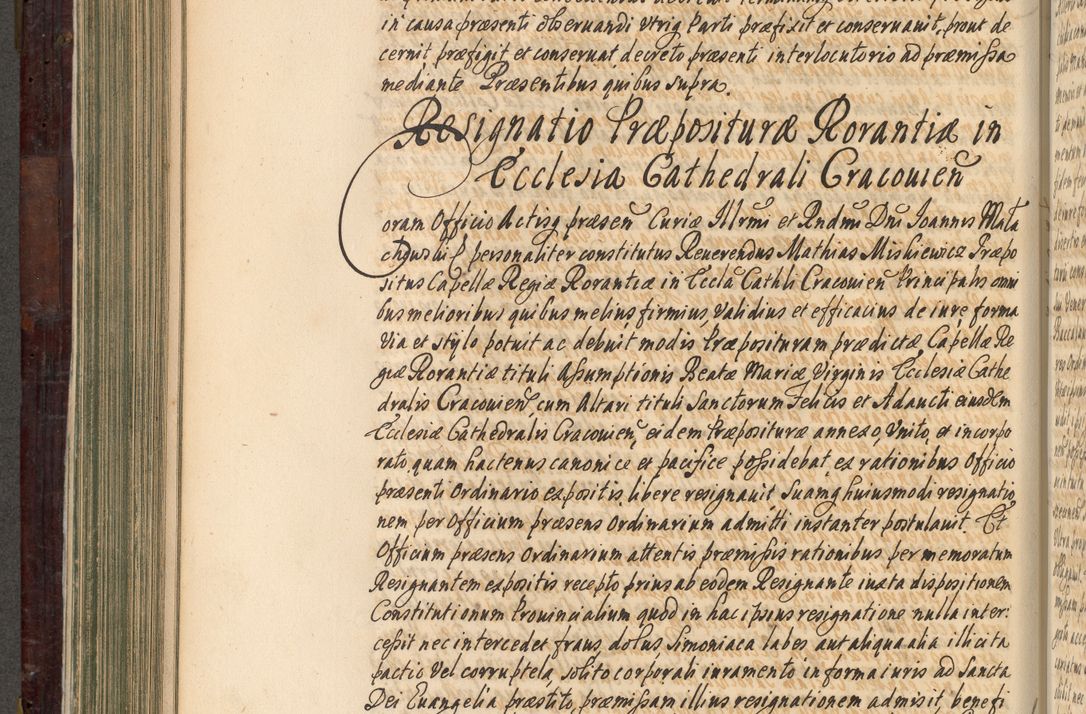 in causa præsenti observandi utrig parti præfixit et conservavit, prout de
cernit præfigit et conservat decreto præsenti interlocutorio ad præmissa
mediante Præsentibus quibus supra.
Resignatio Præposituræ Rorantiæ in
Ecclesia Cathedrali Cracovien̄
Coram Officio Actisq̄ præsen̄ Curiæ Illrmi et Rndmi Dni Joannis Mała
chowski E personaliter constitutus Reverendus Mathias Miskiewicz Præpo
situs Capellæ Regiæ Rorantiæ in Eccla Cathli Cracovien̄ Principalis omni
bus melioribus quibus melius firmius validius et efficacius de iure forma
via et stylo potuit ac debuit modis Præposituram prædictæ Capellæ Re
giæ Rorantiæ tituli Assumptionis Beatæ Mariæ Virginis Ecclesiæ Cathe
dralis Cracovien̄ cum Altari tituli Sanctorum Felicis et Adaucti eiusdem
Ecclesiæ Cathedralis Cracovien̄, eidem Præposituræ annexo, Unito, et incorpo
rato, quam hactenus canonice et pacifice possidebat, ex rationibus Officio
præsenti Ordinario expositis, libere resignavit Suamq̄ huiusmodi resignatio
nem per Officium præsens Ordinarium admitti instanter postulavit. Et
Officium præsens Ordinarium attentis præmissis rationibus per memoratum
Resignantem expositis recepto prius ab eodem Resignante iuxta dispositionem
Constitutionum Provincialium quod in hac ipsius resignatione nulla inter:
cessit nec intercedet fraus, dolus, Simoniaca labes aut aliqua alia illicita
pactio vel corruptela, solito corporali iuramento in forma iuris ad Sancta
Dei Evangelia præstito, præmissam illius resignationem admisit, benefi